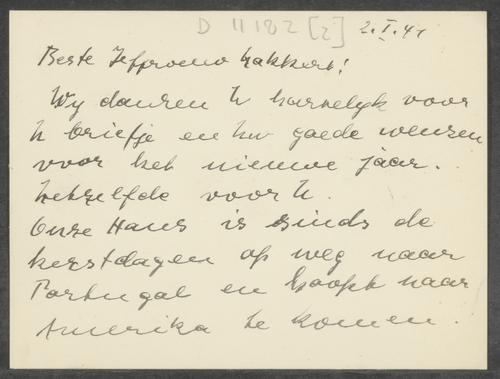 D 11182 [2]
2.I.41
Beste Jefprouw Bakkers!
Wy danken U hartelyk voor
U briefje en Uw goede wensen
voor het nieuwe jaar.
Hetzelfde voor U.
Onze Hans is sinds de
kerstdagen op weg naar
Portugal en hoopt naar
Amerika te komen.